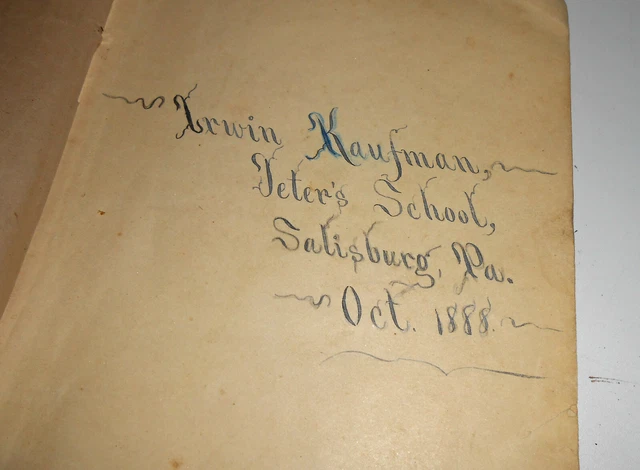 Irwin Kaufman,
Yeter's School,
Salisburg, Pa.
Oct. 1888.